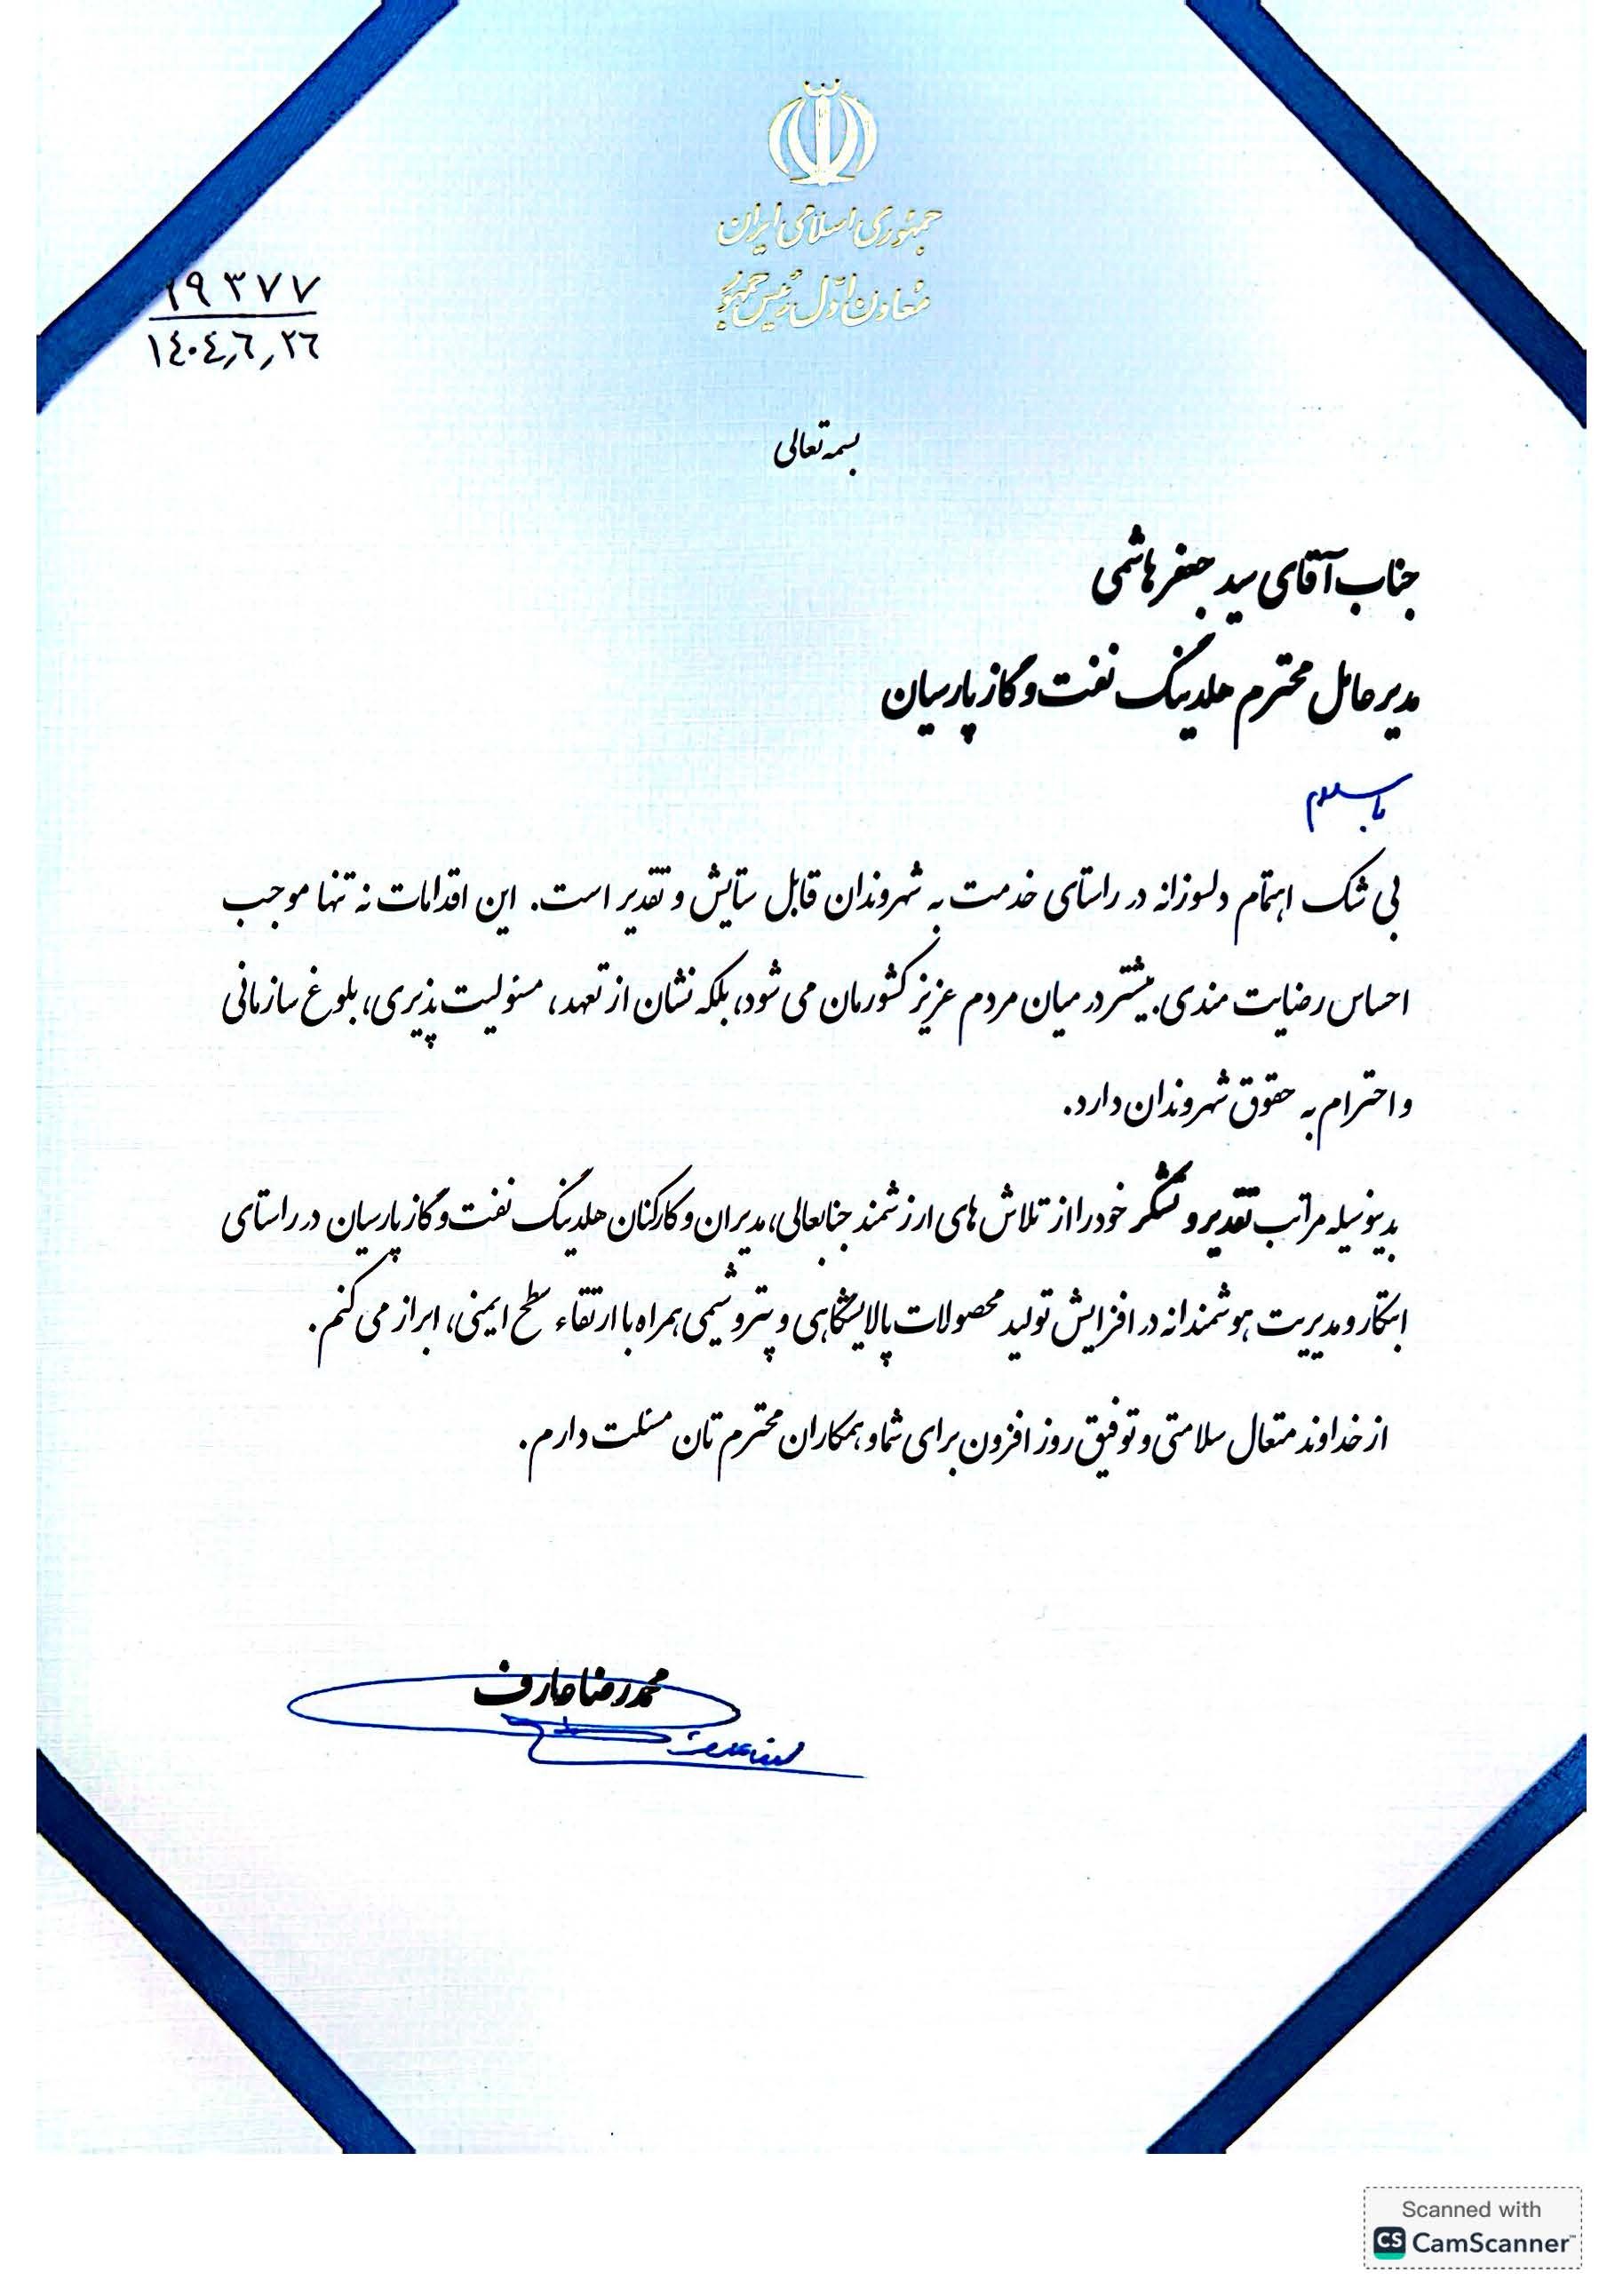 جمهوری اسلامی ایران
معاون اول رئیس جمهور
۱۹۳۷۷
۱۴۰۴,۶,۲۶
بسمه تعالی
جناب آقای سید جعفر هاشمی
مدیر عامل محترم هلدینگ نفت و گاز پارسیان
با سلام
بی شک اهتمام دلسوزانه در راستای خدمت به شهروندان قابل ستایش و تقدیر است. این اقدامات نه تنها موجب
احساس رضایت مندی بیشتر در میان مردم عزیز کشورمان می شود، بلکه نشان از تعهد، مسئولیت پذیری، بلوغ سازمانی
و احترام به حقوق شهروندان دارد.
بدینوسیله مراتب تقدیر و تشکر خود را از تلاش های ارزشمند جنابعالی، مدیران و کارکنان هلدینگ نفت و گاز پارسیان در راستای
ابتکار و مدیریت هوشمندانه در افزایش تولید محصولات پالایشگاهی و پتروشیمی همراه با ارتقاء سطح ایمنی، ابراز می کنم.
از خداوند متعال سلامتی و توفیق روز افزون برای شما و همکاران محترم تان مسئلت دارم.
محمدرضا عارف
Scanned with
CS CamScanner